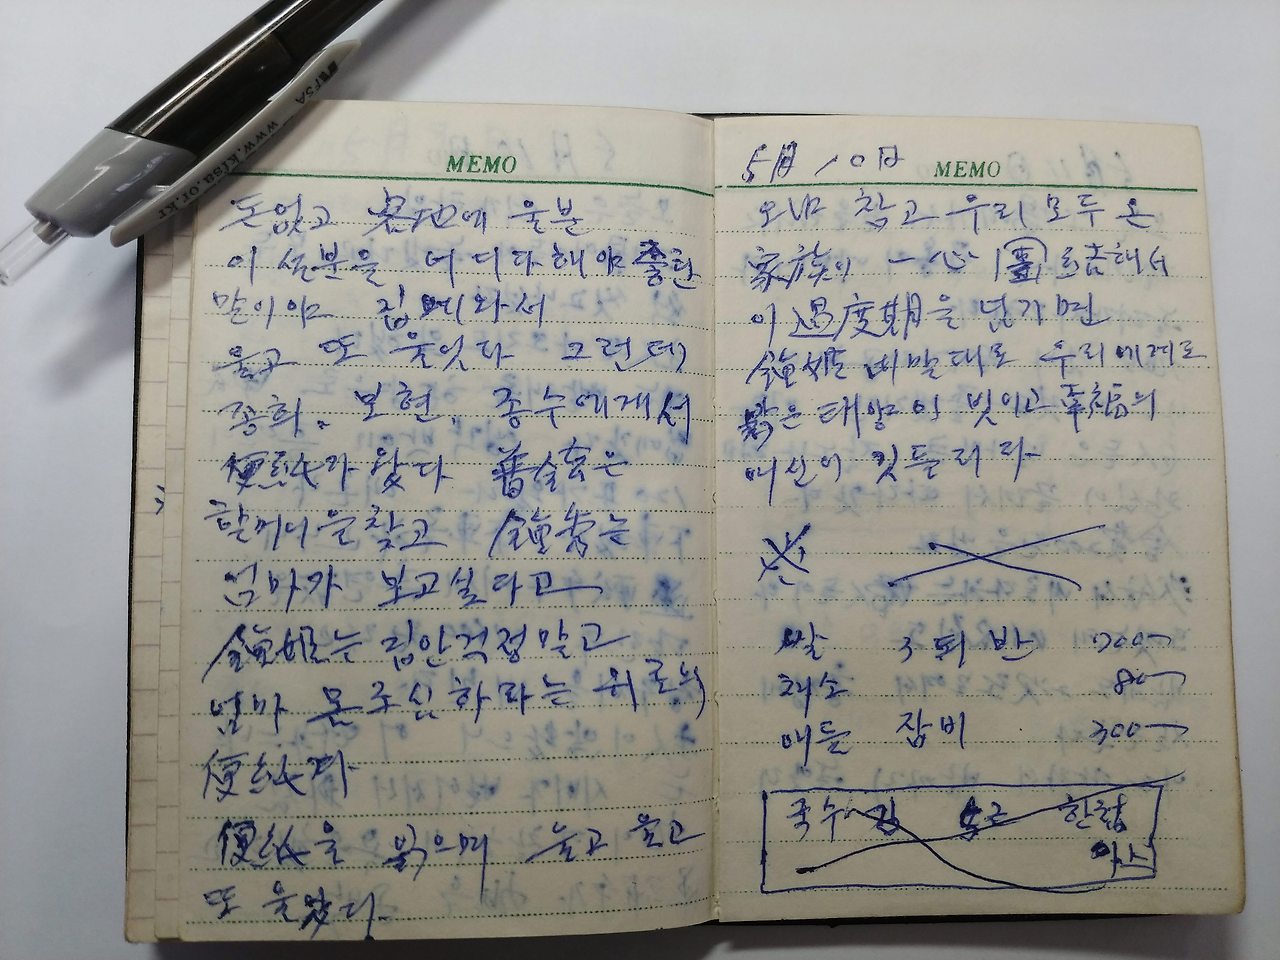 MEMO
돈없고 에 울분
이 설분을 어디다해야 좋탄
말이야 집에와서
울고 또 울엇다 그런데
종희. 보현. 종수에게서
便紙가 왔다 은
할머니을 찾고 鍾秀는
엄마가 보고싶다고
鍾姬는 집안걱정말고
엄마 몸조심하라는 위로의
便紙다
便紙을 읽으며 울고 울고
또 울었다.
5月 10日
MEMO
오냐 참고 우리 모두 온
家族이 一心 團結해서
이 過度期을 넘기면
鍾姬 말대로 우리에게도
밝은 태양이 빗이고 幸福의
여신이 깃들리라
쌀 3되반 700
채소 80
애들 잡비 300
국수 한럽
www.kfsa.or.kr
KFSA